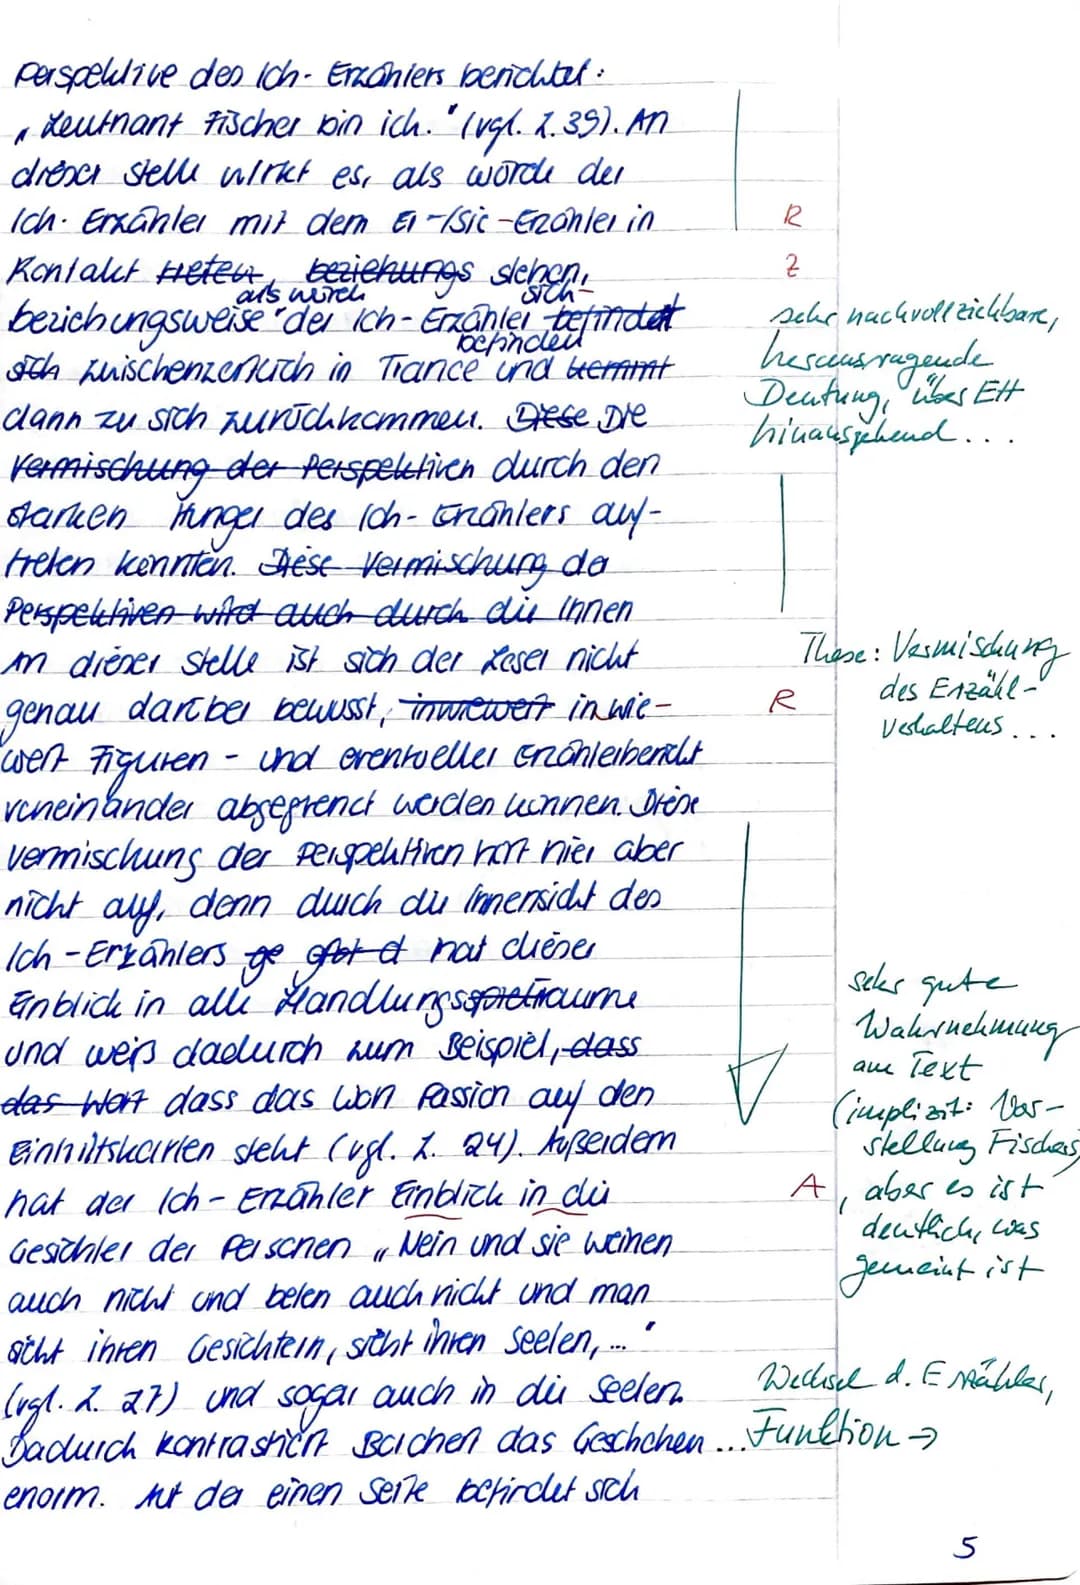 Perspektive des Ich-Erzählers berichtet:
„Leutnant Fischer bin ich." (vgl. Z. 39). An
dieser Stelle wirkt es, als würde der
Ich-Erzähler mit dem Er-/Sie-Erzähler in
R
Kontakt treten, beziehungs stehen,
Z
als würde sich
beziehungsweise der Ich-Erzähler befindet
befinden
sich zwischenzeitlich in Trance und kommt
dann zu sich zurückkommen. Diese Die
sehr nachvollziehbare,
herausragende
Deutung, über EH
hinausgehend...
Vermischung der Perspektiven durch den
starken Hunger des Ich-Erzählers auf-
treten könnten. Diese Vermischung de
Perspektiven wird auch durch die Innen
An dieser Stelle ist sich der Leser nicht
genau darüber bewusst, inwieweit inwie-
R
These: Vermischung
des Erzähl-
verhaltens...
weit Figuren- und eventueller Erzählerbericht
voneinander abgegrenzt werden können. Diese
Vermischung der Perspektiven hört hier aber
nicht auf, denn durch die Innensicht des
Ich-Erzählers ge hat dieser
Einblick in alle Handlungsspielräume
und weiß dadurch zum Beispiel, dass
das Wort dass das Wort Passion auf den
Eintrittskarten steht (vgl. Z. 24). Außerdem
hat der Ich-Erzähler Einblick in die
A
sehr gute
Wahrnehmung
am Text
(implizit: Vor-
stellung Fischers,
aber es ist
deutlich, was
gemeint ist
Gesichter der Personen „Nein und sie weinen
auch nicht und beten auch nicht und man
sieht ihren Gesichtern, sieht ihren Seelen,..."
(vgl. Z. 27) und sogar auch in die Seelen.
Dadurch kontrastiert Borchert das Geschehen
Wechsel d. Erzähler,
...Funktion →
enorm. Auf der einen Seite befindet sich
5